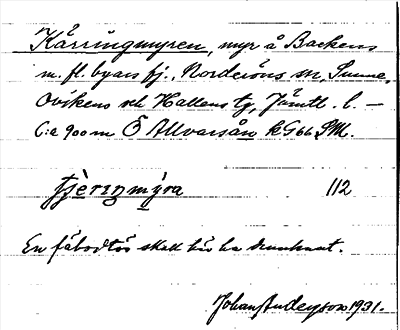 Kärringmyren, myr å Backens
m. fl. byars fj., Norderöns sn, Sunne,
Ovikens och Hallens tg, Jämtl. l. —
C:a 900 m Ö Allvarsån k G 66 SM.
112
En fäbodtös skall här ha drunknat.
Johan Anderzson 1931.